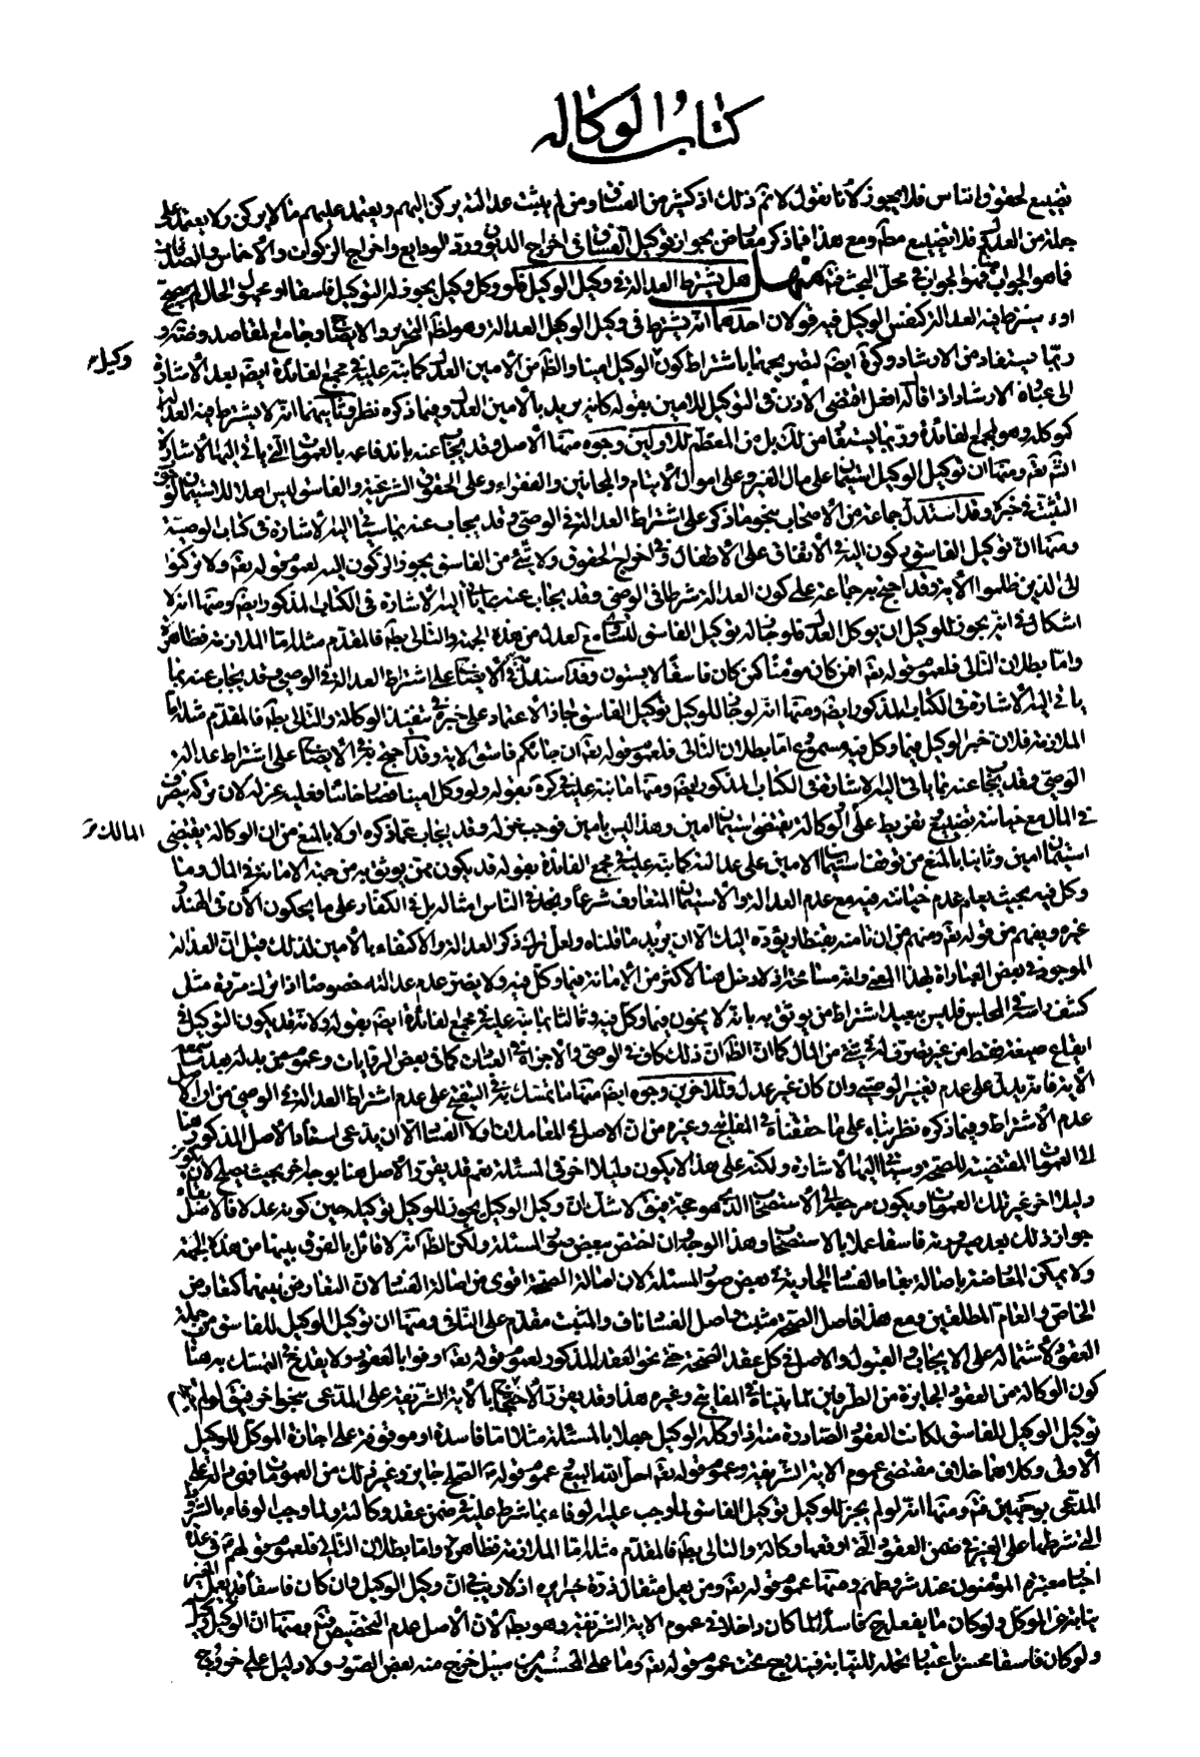 كتاب الوكالة
تضييع لحقوق الناس فلا يجوز لأنا نقول لا ثم ذلك اذ كثير من الفساق ومن لم يثبت عدالته يركن اليهم ويعتمد عليهم ما لا يركن ولا يعتمد على
جملة من العدول فلا تضييع مطلقا ومع هذا فما ذكر معارض بجواز توكيل الفساق في اخراج الديون ورد الودايع واخراج الزكوات والأخماس والصدقات
فما هو الجواب فهو الجواب في محل البحث فتم منهل هل يشترط العدالة في وكيل الوكيل فلو وكل وكيل يجوز له التوكيل فاسقا او مجهول الحال لم يصح
او لا يشترط فيه العدالة كنفس الوكيل فيه قولان احدهما انه يشترط في وكيل الوكيل العدالة وهو لظ التحرير والايضاح وجامع المقاصد
ربما يستفاد من الارشاد وكرة ايضا لتصريحهما باشتراط كون الوكيل امينا والظ من الأمين العدل كما نبه عليه في مجمع الفائدة ايضا بعد الأشارة
وكيل
الى عبارة الارشاد
كموكله وهو لمجمع الفائدة وربما يستفاد من لك بل من المعظم للاولين وجوه منها الأصل وقد يجاب عنه باندفاعه بالعمومات الآتي اليها الأشارة
انش تع ومنها ان توكيل الوكيل استيمان على مال الغير وعلى اموال الأيتام والمجانين والفقراء وعلى الحقوق الشرعية والفاسق ليس اهلا للاستيمان
التثبت في خبره وقد استدل جماعة من الأصحاب بنحو ما ذكر على اشتراط العدالة في الوصي وقد يجاب عنه بما سيأتي اليه الأشارة في كتاب الوصية
ومنها ان توكيل الفاسق ركون اليه في الانفاق على الأطفال وفي اخراج الحقوق ولا شئ من الفاسق يجوز الركون اليه لعموم قوله تعم ولا تركنوا
الى الذين ظلموا الأية وقد احتج به جماعة على كون العدالة شرطا في الوصي وقد يجاب عنه بما يأتي اليه الأشارة في الكتاب المذكور ايضا ومنها انه لا
اشكال في انه يجوز للوكيل ان يوكل العدل فلو جاز له توكيل الفاسق لتساوى مع العدل من هذه الجهة والتالي بط فالمقدم مثله اما الملازمة فظاهرة
واما بطلان التالي فلعموم قوله تعم افمن كان مؤمنا كمن كان فاسقا لا يستون وقد استدل في الايضاح على اشتراط العدالة في الوصي وقد يجاب عنه بما
يأتي اليه الاشارة في الكتاب المذكور ايضا ومنها انه لو جاز للوكيل توكيل الفاسق لجاز الاعتماد على خبره في تنفيذ الوكالة والتالي بط فالمقدم مثله اما
الملازمة فلان خبر الوكيل فيما وكل فيه مسموع اما بطلان التالي فلعموم قوله تعم ان جائكم فاسق الاية وقد احتج في الايضاح على اشتراط عدالة
الوصي وقد يجاب عنه بما يأتي اليه الاشارة في الكتاب المذكور ايضا ومنها ما نبه عليه في كرة بقوله ولو وكل امينا فصار خائنا فعليه عزله لان تركه يتصرف
في المال مع خيانته تضييع وتفريط على الوكالة تقتضي استيمان امين وهذا ليس بامين فوجب عزله وقد يجاب عما ذكره اولا بالمنع من ان الوكالة يقتضي
المالك
استيمان امين وثانيا بالمنع من توقف استيمان الامين على عدالته كما نبه عليه في مجمع الفائدة بقوله قد يكون ممن يوثق به من جهة الامانة في المال وما
وكل فيه بحيث يعلم عدم خيانته فيه مع عدم العدالة والأستيمان المتعارف شرعا ونجد في الناس امثاله بل في الكفار على ما يحكون الأن في الهند
غيره ويفهم من قوله تعم ومنهم من ان تامنه بقنطار يؤده اليك الا ان يريد ما قلناه ولعل ترك ذكر العدالة والاكتفاء بالأمين لذلك قيل ان العدالة
الموجودة في بعض العبارات بهذا المعنى وانه مسامحة اذ لا دخل هنا لأكثر من الأمانة فيما وكل فيه ولا يضر عدم عدالته خصوصا اذا قل مرتبة مثل
كشف راسه في المجلس فليس ببعيد اشتراط من يوثق به بانه لا يخون فيما وكل فيه وثالثا بما نبه عليه في مجمع الفائدة ايضا بقوله ولانه قد يكون التوكيل في
ايقاع صيغة فقط من غير تصرف له في شئ من المال
الاية فانه يدل على عدم تغيير الوصية وان كان غير عدل وللاخرين وجوه ايضا منها ما تمسك به في التنقيح على عدم اشتراط العدالة في الوصي من ان الأصل
عدم الاشتراط وفيما ذكره نظر بناء على ما حققناه في المفاتيح وغيره من ان الاصل في المعاملات ولا الفساد الا ان يدعى استفادة الأصل المذكور هنا
الى العمومات المقتضية للصحة وسيأتي اليها الأشارة ولكنه على هذا لا يكون دليلا اخر في المسئلة نعم قد يقرر الأصل هنا بوجه اخر بحيث يصلح لان يكون
دليلا اخر غير تلك العمومات ويكون مرجعه الى الأستصحاب الذي هو حجة فيق لا شك ان وكيل الوكيل يجوز للوكيل توكيله حين كونه عدلا فالاصل بقاء
جواز ذلك بعد صيرورته فاسقا عملا بالاستصحاب وهذا الوجه وان اختص ببعض صور المسئلة ولكن الظ انه لا قائل بالفرق بينهما من هذه الجهة
ولا يمكن المعارضة باصالة بقاء الفساد الجارية في بعض صور المسئلة لان اصالة الصحة اقوى من اصالة الفساد لان التعارض بينهما كتعارض
الخاص والعام المطلقين ومع هذا فاصل الصحة مثبت واصل الفساد ناف والمثبت مقدم على النافي ومنها ان توكيل الوكيل للفاسق من جملة
العقود لاشتماله على الايجاب والقبول والاصل في كل عقد الصحة حتى نحو العقد المذكور لعموم قوله تعم اوفوا بالعقود ولا يقدح في التمسك به هنا
كون الوكالة من العقود الجايزة من الطرفين لما بيناه في المفاتيح وغيره هذا وقد يقرر الأحتجاج بالأية الشريفة على المدعى بنحو اخر فيق لو لم يصح
توكيل الوكيل للفاسق لكانت العقود الصادرة منه اذا وكله الوكيل جهلا بالمسئلة مثلا اما فاسدة او موقوفة على اجازة الموكل للوكيل
الأولى وكلاهما خلاف مقتضى عموم الاية الشريفة وعموم قوله تعم احل الله البيع وعموم قوله ع الصلح جايز وغير ذلك من العمومات
المدعى بوجهين فتم ومنها انه لو لم يجز للوكيل توكيل الفاسق لما وجب عليه الوفاء بما شرط عليه في ضمن عقد وكالته ولما وجب الوفاء بالشروط
التي شرطها على الغير في ضمن العقود التي اوقعها وكالة والتالي بط فالمقدم مثله اما الملازمة فظاهرة واما بطلان التالي فلعموم قولهم ع في عدة
اخبار معتبرة المؤمنون عند شروطهم ومنها عموم قوله تعم ومن يعمل مثقال ذرة خيرا يره اذ لا ريب في ان وكيل الوكيل وان كان فاسقا قد يعمل الخير
نيابة عن الموكل ولو كان ما يفعله ح فاسدا لما كان داخلا في عموم الاية الشريفة وهو بط لان الأصل عدم التخصيص فتم ومنها ان الوكيل
ولو كان فاسقا محسن باعتبار تحمله للنيابة فيندرج تحت عموم قوله تعم وما على المحسنين من سبيل خرج منه بعض الصور ولا دليل على خروج